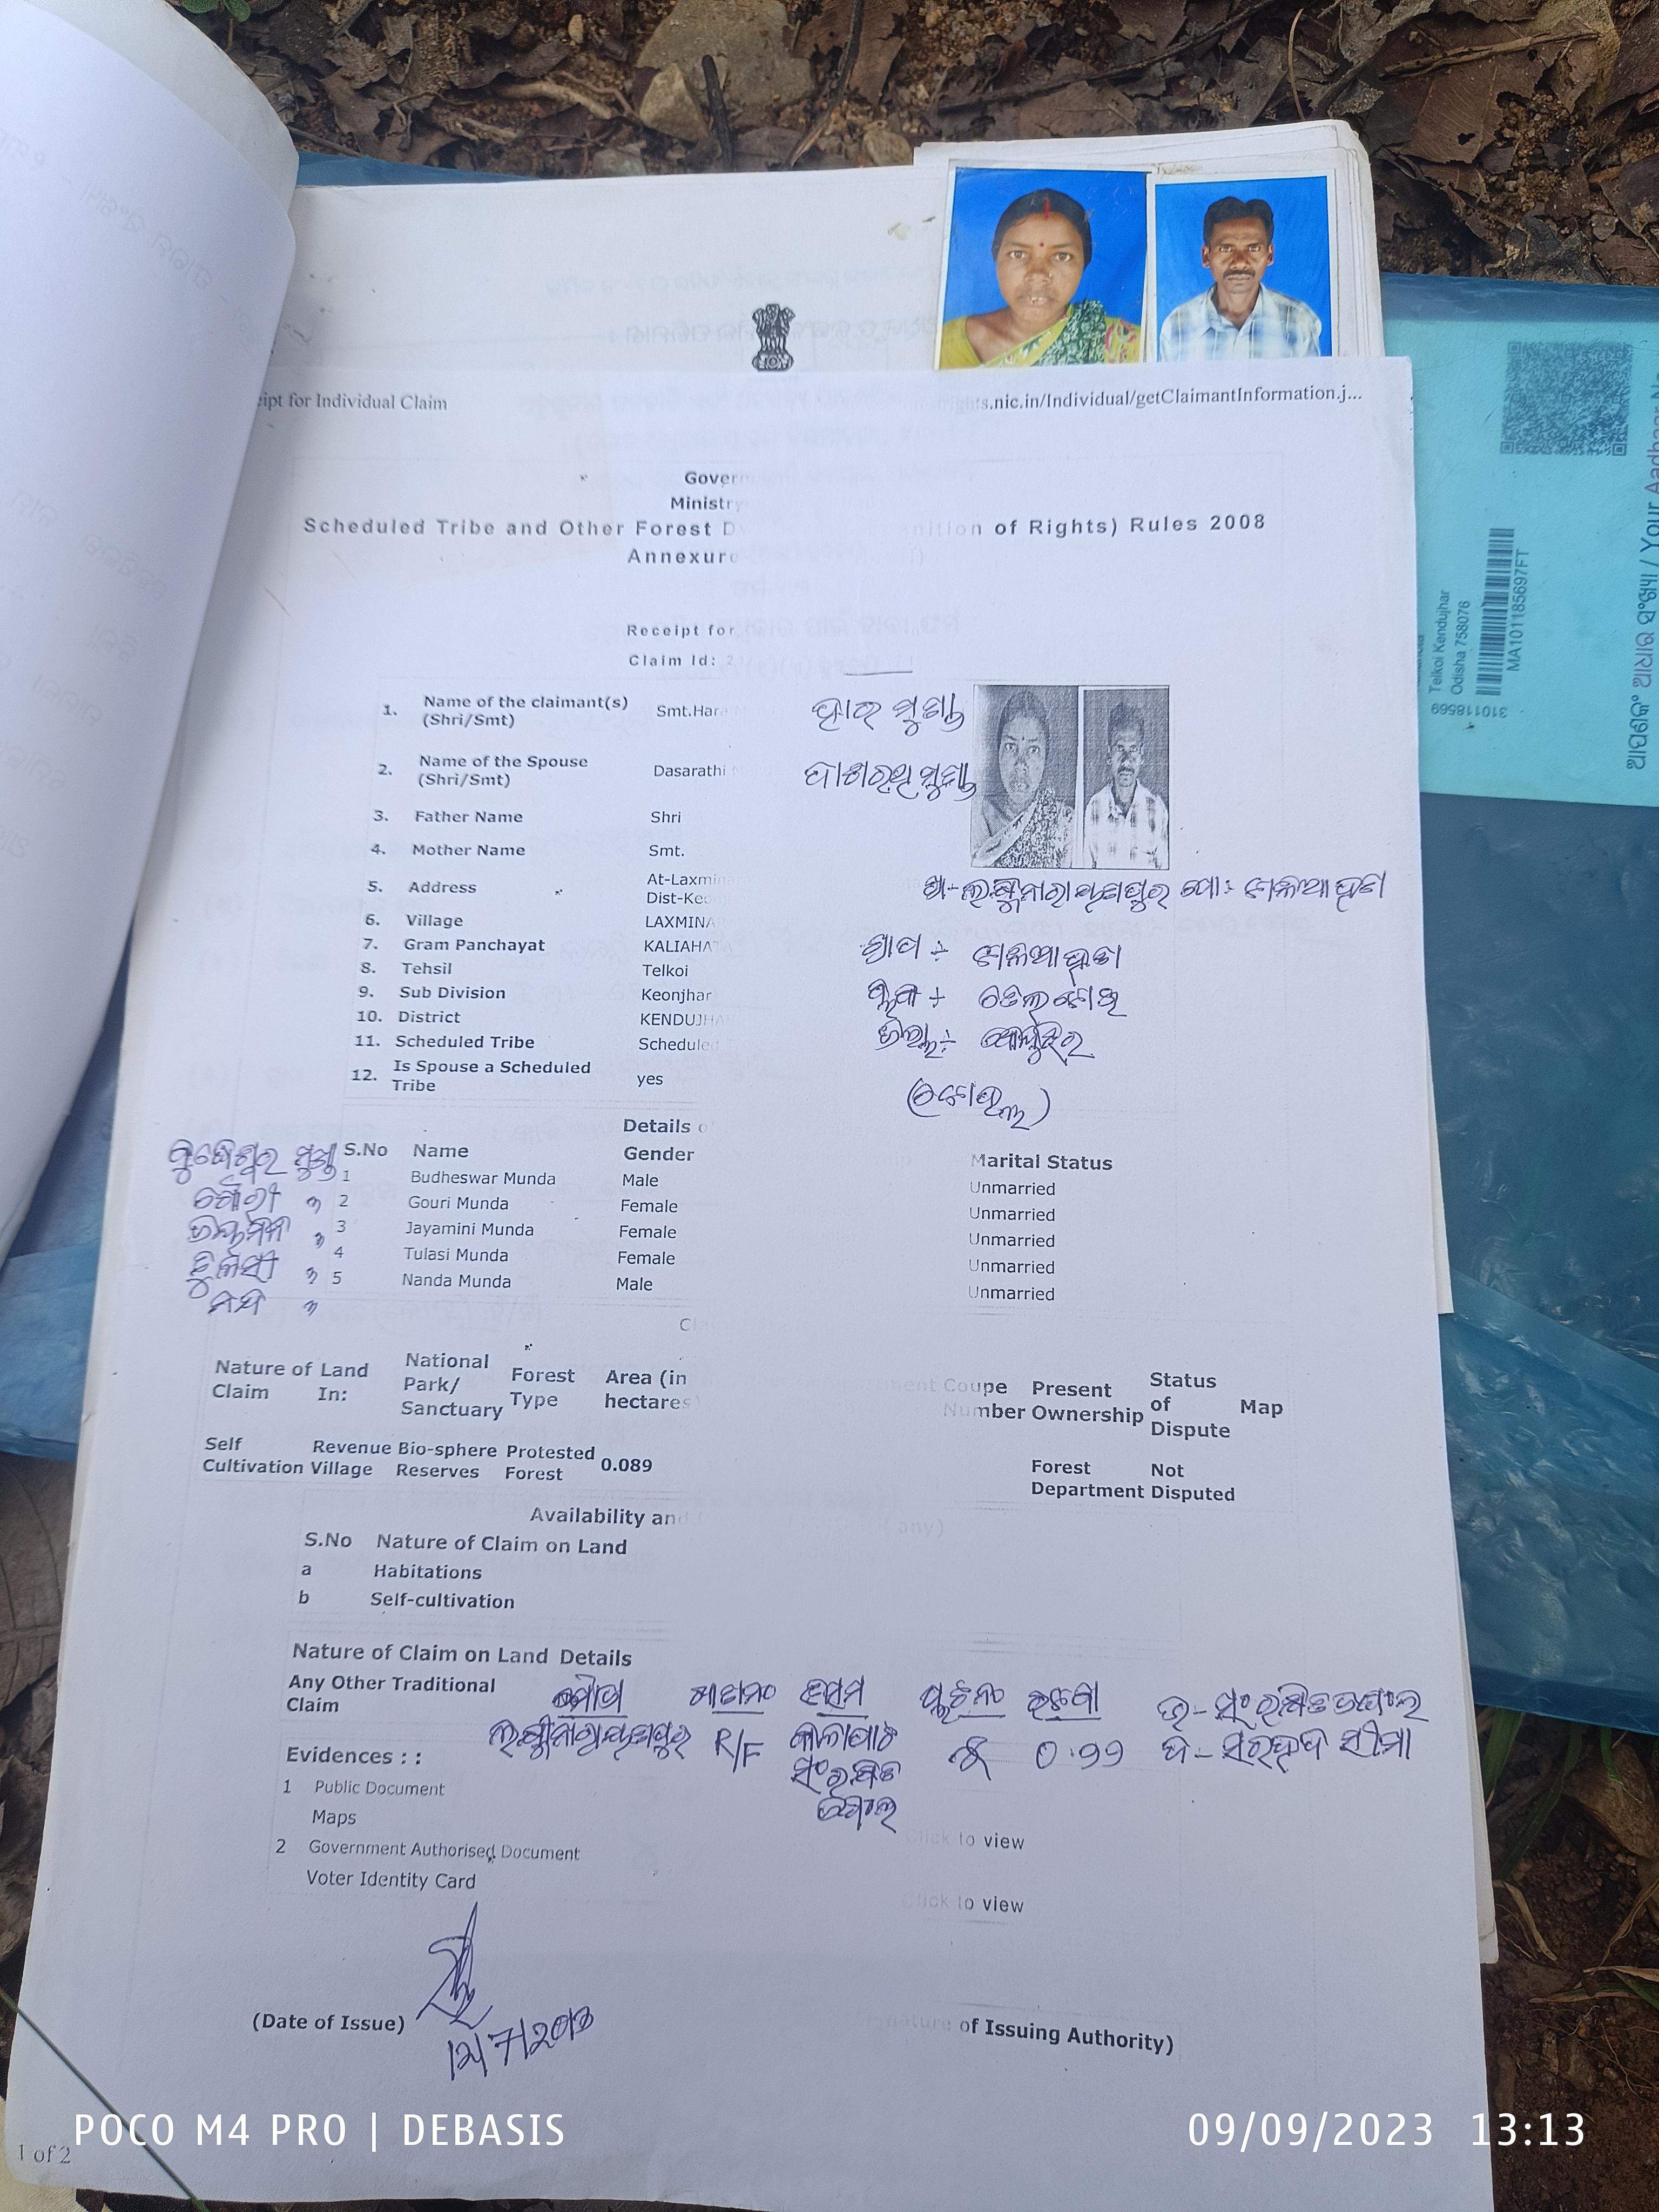 ipt for Individual Claim
rights.nic.in/Individual/getClaimantInformation.j...
Govern
Ministry
Scheduled Tribe and Other Forest D nition of Rights) Rules 2008
Annexure
Receipt for
Claim Id: 2
1. Name of the claimant(s) (Shri/Smt) Smt.Hara ହାରା ମୁଣ୍ଡା
2. Name of the Spouse (Shri/Smt) Dasarathi ଦାଶରଥି ମୁଣ୍ଡା
3. Father Name Shri
4. Mother Name Smt.
5. Address At-Laxmina
Dist-Keo
ଗ୍ରା-ଲକ୍ଷ୍ମୀନାରାୟଣପୁର ପୋ: କାଳିଆହତା
6. Village LAXMINA
7. Gram Panchayat KALIAHATA
8. Tehsil Telkoi
9. Sub Division Keonjhar
10. District KENDUJHA
11. Scheduled Tribe Scheduled
12. Is Spouse a Scheduled Tribe yes
Details o
S.No Name Gender Marital Status
1 Budheswar Munda Male Unmarried
2 Gouri Munda Female Unmarried
3 Jayamini Munda Female Unmarried
4 Tulasi Munda Female Unmarried
5 Nanda Munda Male Unmarried
ବୁଧେଶ୍ୱର ମୁଣ୍ଡା
ଗୌରୀ "
ତୁଳସୀ "
ନନ୍ଦ "
Nature of Claim Land In: National Park/ Sanctuary Forest Type Area (in hectares) ment Coupe Number Present Ownership Status of Dispute Map
Self Cultivation Revenue Village Bio-sphere Reserves Protested Forest 0.089 Forest Department Not Disputed
Availability and any)
S.No Nature of Claim on Land
a Habitations
b Self-cultivation
Nature of Claim on Land Details
Any Other Traditional Claim
ମୌଜା
ଲକ୍ଷ୍ମୀନାରାୟଣପୁର R/F 0.99
ଉ-ସଂରକ୍ଷିତ ଜଙ୍ଗଲ
ଦ-ସରହଦ ସୀମା
ସଂରକ୍ଷିତ
ଜଙ୍ଗଲ
Evidences : :
1 Public Document
Maps
Click to view
2 Government Authorised Document
Voter Identity Card
Click to view
(Date of Issue)
nature of Issuing Authority)
1 of 2
Telkoi Kendujhar
Odisha 758076
MA101185697FT
310118569
ଆପଣଙ୍କ ଆଧାର ସଂଖ୍ୟା / Your Aadhaar No
POCO M4 PRO | DEBASIS
09/09/2023 13:13